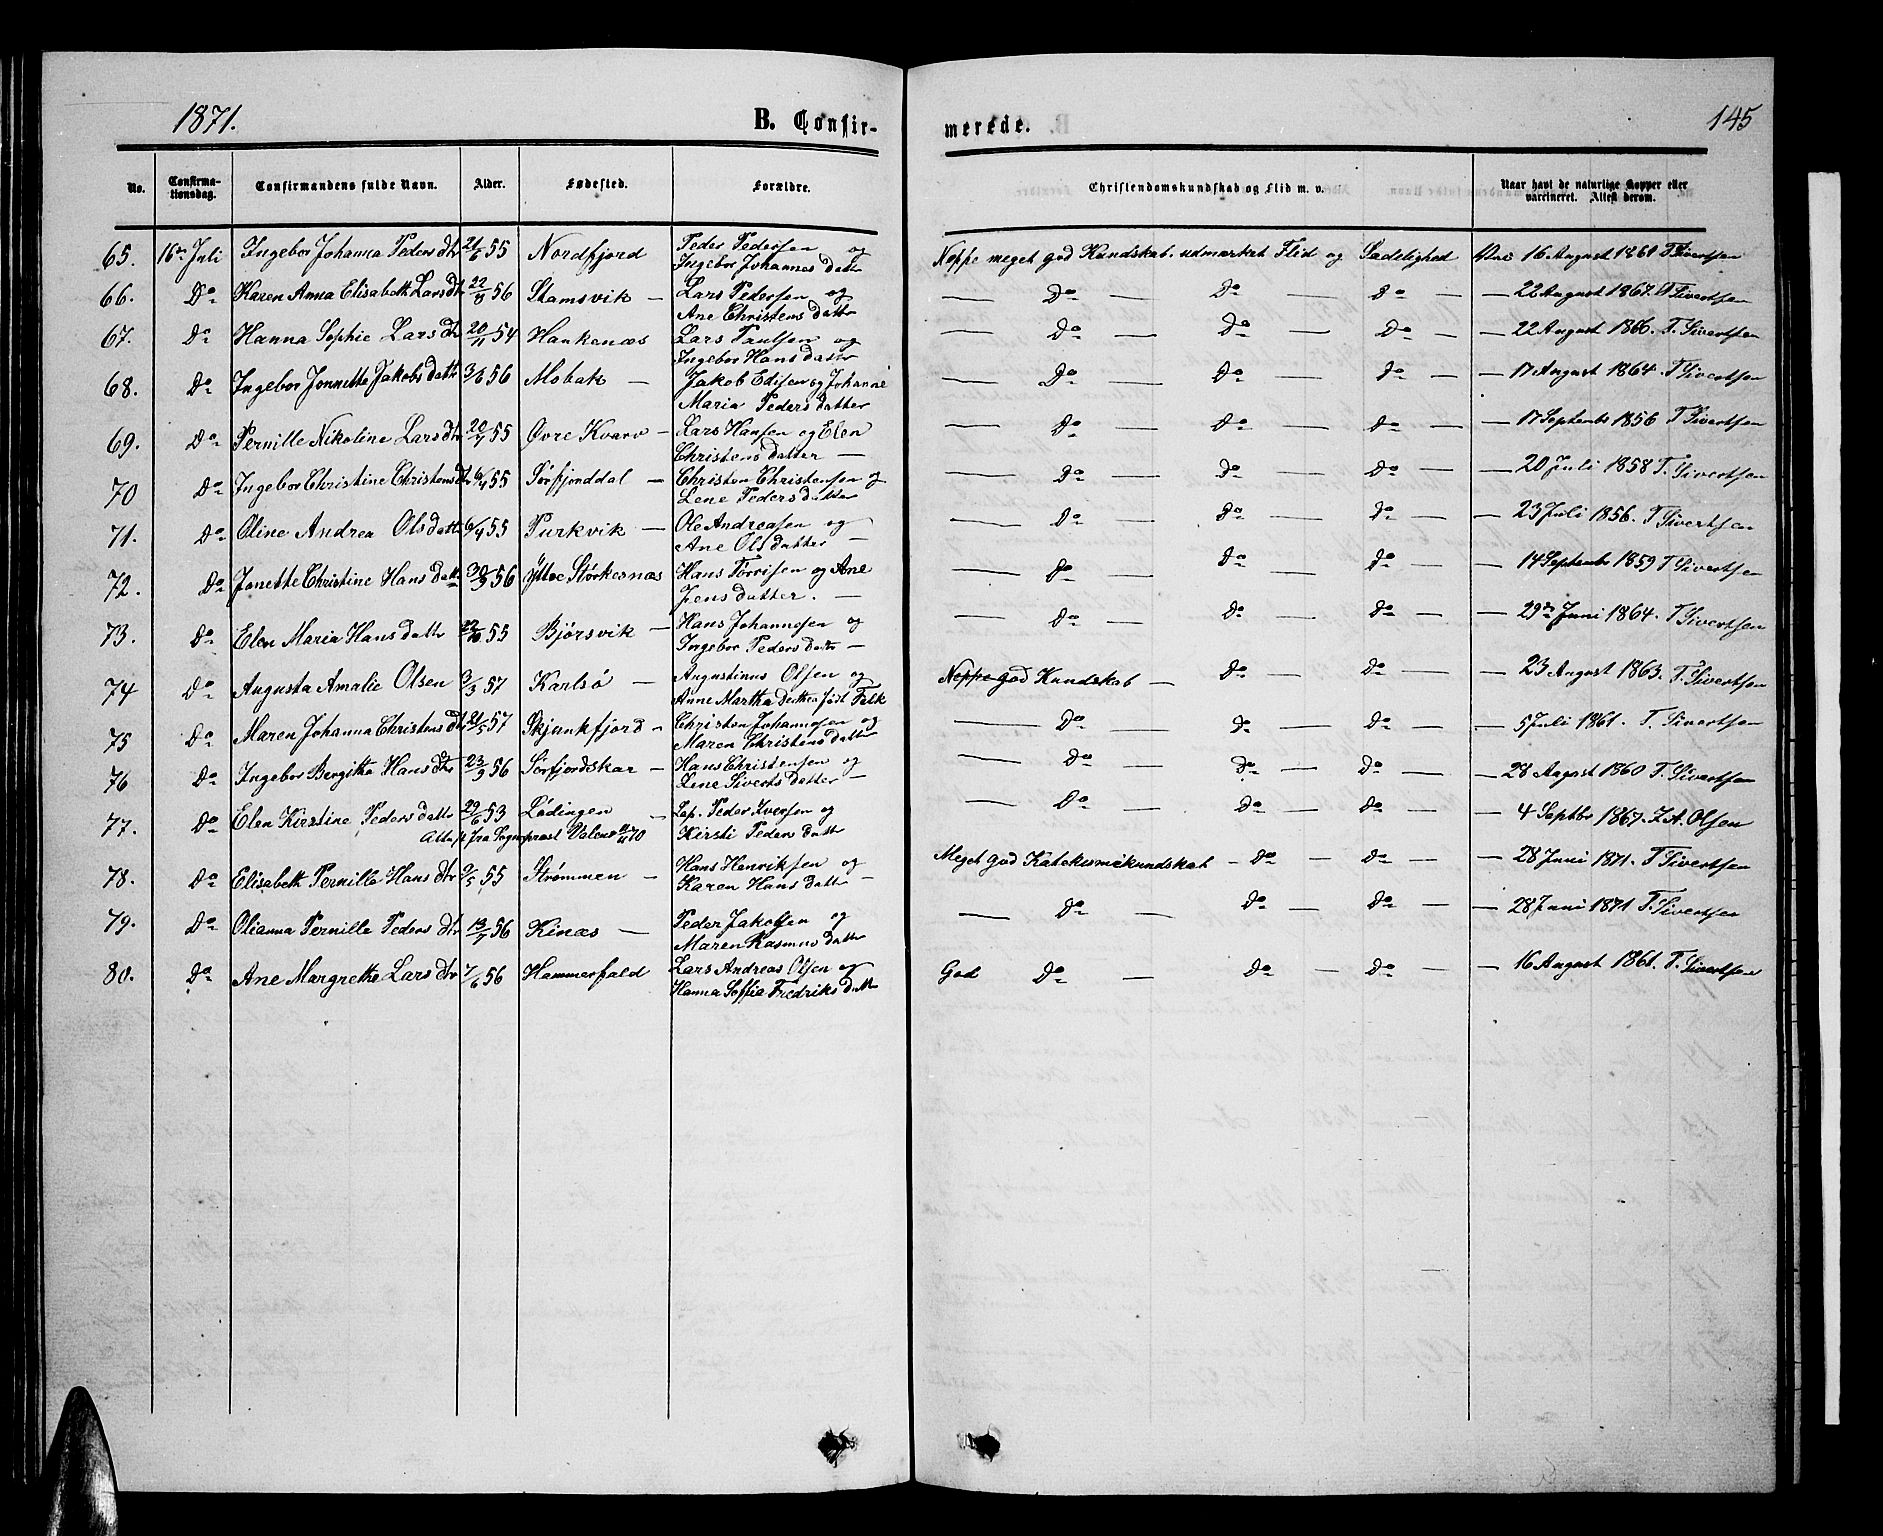 1871.
B. Confir-
merede.
145
No.
Confirma-
tionsdag.
Confirmandens fulde Navn.
Alder.
Fødested.
Forældre.
Christendomskundskab og Flid m. v.
Naar havt de naturlige Kopper eller
vaccineret. Attest derom.
65. 16de Juli Ingebor Johanna Pedersdtr 21/6 55 Nordfjord Peder Pedersen og Neppe meget god Kundskab. udmærket Flid og Sædelighed Vac 16 August 1861 T. Sivertsen
Ingebor Johannes datter
66. Do Karen Anna Elisabeth Larsdtr 56 Stamsvik — Lars Pedersen og — Do — Do — Do — — 22 August 1867. T. Sivertsen
Ane Christens datter
67. Do Hanna Sophie Larsdtr 20/11 54 Haukenæs Lars Paulsen og — Do — Do — Do — — 22 August 1866. T. Sivertsen
Ingebor Hans datter
68. Do Ingebor Jonnette Jakobsdatter 3/6 56 Mobak — Jakob Edisen og Johanne — Do — Do — Do — — 17 August 1864. T. Sivertsen
Maria Peders datter
69. Do Pernille Nikoline Larsdtr 55 Øvre Kvarv — Lars Hansen og Elen — Do — Do — Do — — 17 Septembr 1856 T. Sivertsen
Christens datter —
70 Do Ingebor Christine Christensdtr 6/4 55 Sørfjorddal — Christen Christensen og — Do — Do — Do — — 20 Juli 1858 T. Sivertsen
Lene Peders datter
71. Do Oline Andrea Olsdatter 6/4 55 Purkvik — Ole Andreasen og — Do — Do — Do — — 23 Juli 1856. T. Sivertsen
Ane Olsdatter —
72. Do Jonette Christine Hans datter 30/9 56 Yttre Størkesnæs Hans Torrisen og Ane — Do — Do — Do — — 14 Septembr 1859 T. Sivertsen
Jens datter. —
73. Do Elen Maria Hans datter 22/10 55 Bjørsvik — Hans Johannesen og — Do — Do — Do — — 29de Juni 1864. T. Sivertsen
Ingebor Peders datter —
74 Do Augusta Amalie Olsen 3/3 57 Karlsø — Augustinus Olsen og Neppe god Kundskab — Do — Do — — 23 August 1863. T. Sivertsen
Anne Martha Dorthea født Falk
75 Do Maren Johanna Christensdtr 21/5 57 Skjunkfjord — Christen Johannesen og — Do — Do — Do — — 5 Juli 1861. T. Sivertsen
Maren Christens datter
76 Do Ingebor Bergitha Hansdtr 23/9 56 Sørfjordskar — Hans Christensen og — Do — Do — Do — — 28 August 1860 T. Sivertsen
Lene Siverts datter —
77. Do Elen Kirstine Peders datter 29/6 53 Lødingen Lap. Peder Iversen og — Do — Do — Do — — 4 Septbr 1867. Z. A. Olsen
Attest fra Sognepræst 70 Kirsti Peders datter
78. Do Elisabeth Pernille Hansdtr 9/5 55 Strømmen — Hans Henriksen og Meget god Katekesmikundskab — Do — Do — — 28 Juni 1871. T. Sivertsen
Karen Hans datter —
79. Do Olianna Pernille Pedersdtr 56 Kinæs — Peder Jakobsen og — Do — Do — Do — — 28 Juni 1871 T. Sivertsen
Maren Rasmus datter
80. Do Ane Margrethe Larsdtr 7/6 56 Hammerfald Lars Andreas Olsen og God Do — Do — Do — — 16 August 1861. T. Sivertsen
Hanna Soffia Fredriks datter